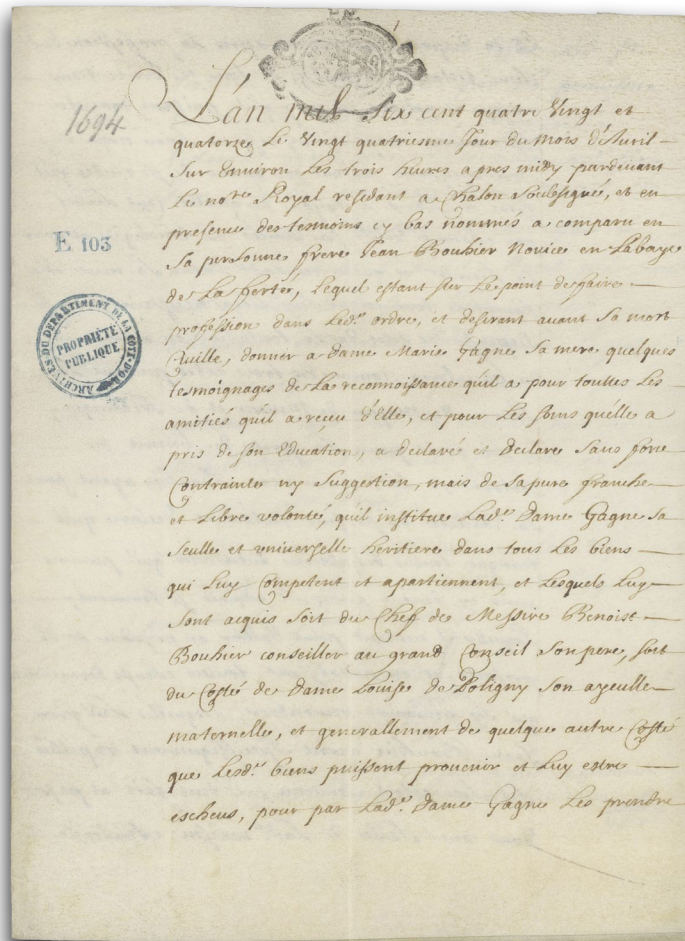 1694
E 103
ARCHIVES DU DÉPARTEMENT DE LA CÔTE-D'OR
PROPRIÉTÉ
PUBLIQUE
L'an mil six cent quatre vingt et
quatorze Le vingt quatriesme Jour du mois d'Auril
Sur Enuiron Les trois heures apres midy pardeuant
Le nore Royal residant a Chalon soubsigné, et en
presence des tesmoins cy bas nommés a comparu en
Sa personne frere Jean Bouhier Novice en Labaye
de La ferté, Lequel estant sur Le point de faire
profession dans Led.t ordre, et desirant auant Sa mort
Ciuille, donner a dame Marie Gagne Sa mere quelques
tesmoignages de La reconnoissance quil a pour touttes Les
amitiés quil a receu d'Elle, et pour Les soins quelle a
pris de son Education, a declaré et declare Sans force
Contrainte ny Suggestion, mais de sa pure franche
et Libre volonté, quil institue Lad.e Dame Gagne Sa
Seulle et vniuerselle heritiere dans tous Les biens
qui Luy Competent et apartiennent, et Lesquels Luy
Sont acquis Soit du Chef de Messire Benoist
Bouhier conseiller au grand Conseil Son pere, soit
du Costé de dame Louise de Poligny Son ayeulle
maternelle, et generallement de quelque autre Costé
que Lesd.ts biens puissent prouenir et Luy estre
escheus, pour par Lad.e Dame Gagne Les prendre